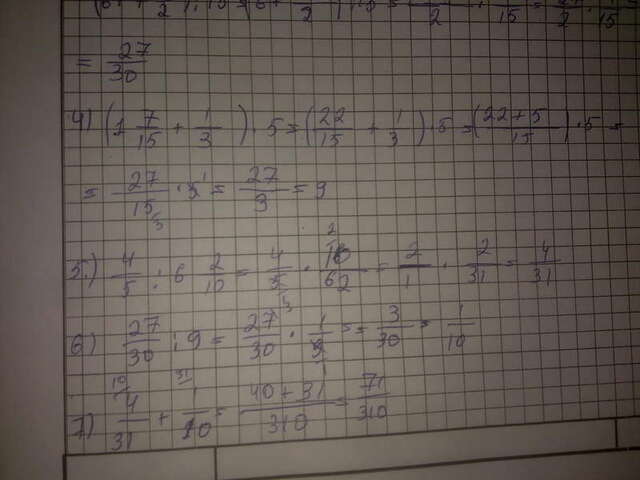 = 27/30
4) (1 7/15 + 1/3) · 5 = (22/15 + 1/3) · 5 = (22+5/15) · 5 =
= 27/15 · 5 = 27/3 = 9
5.) 4/5 : 6 2/10 = 4/5 · 10/62 = 2/1 · 2/31 = 4/31
6) 27/30 : 9 = 27/30 · 1/9 = = 3/30 = 1/10
7) 4/31 + 1/10 = 40+31/310 = 71/310